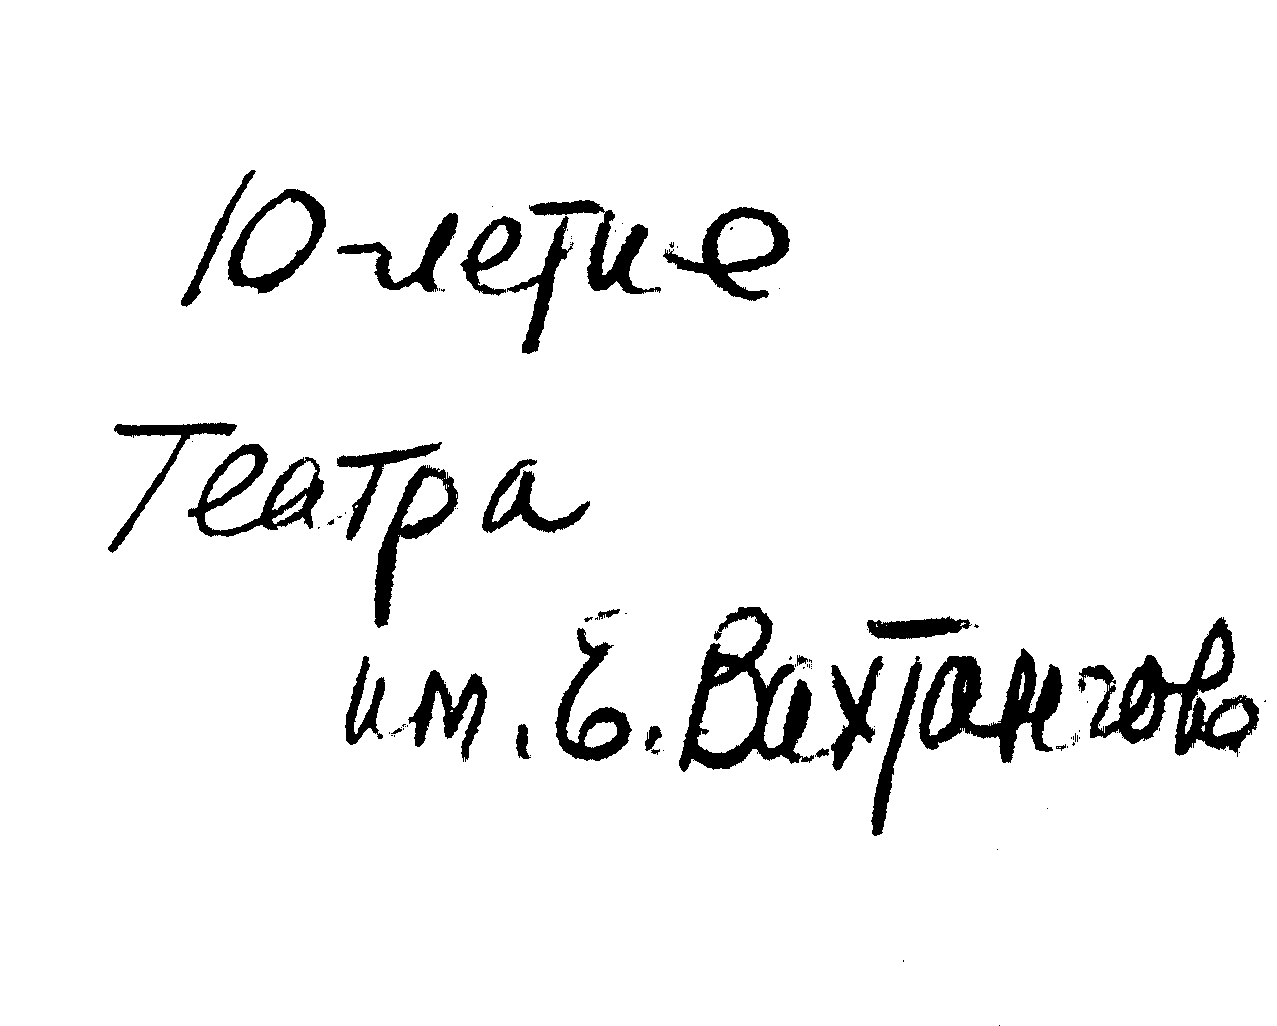 10-летие
Театра
им. Е. Вахтангова